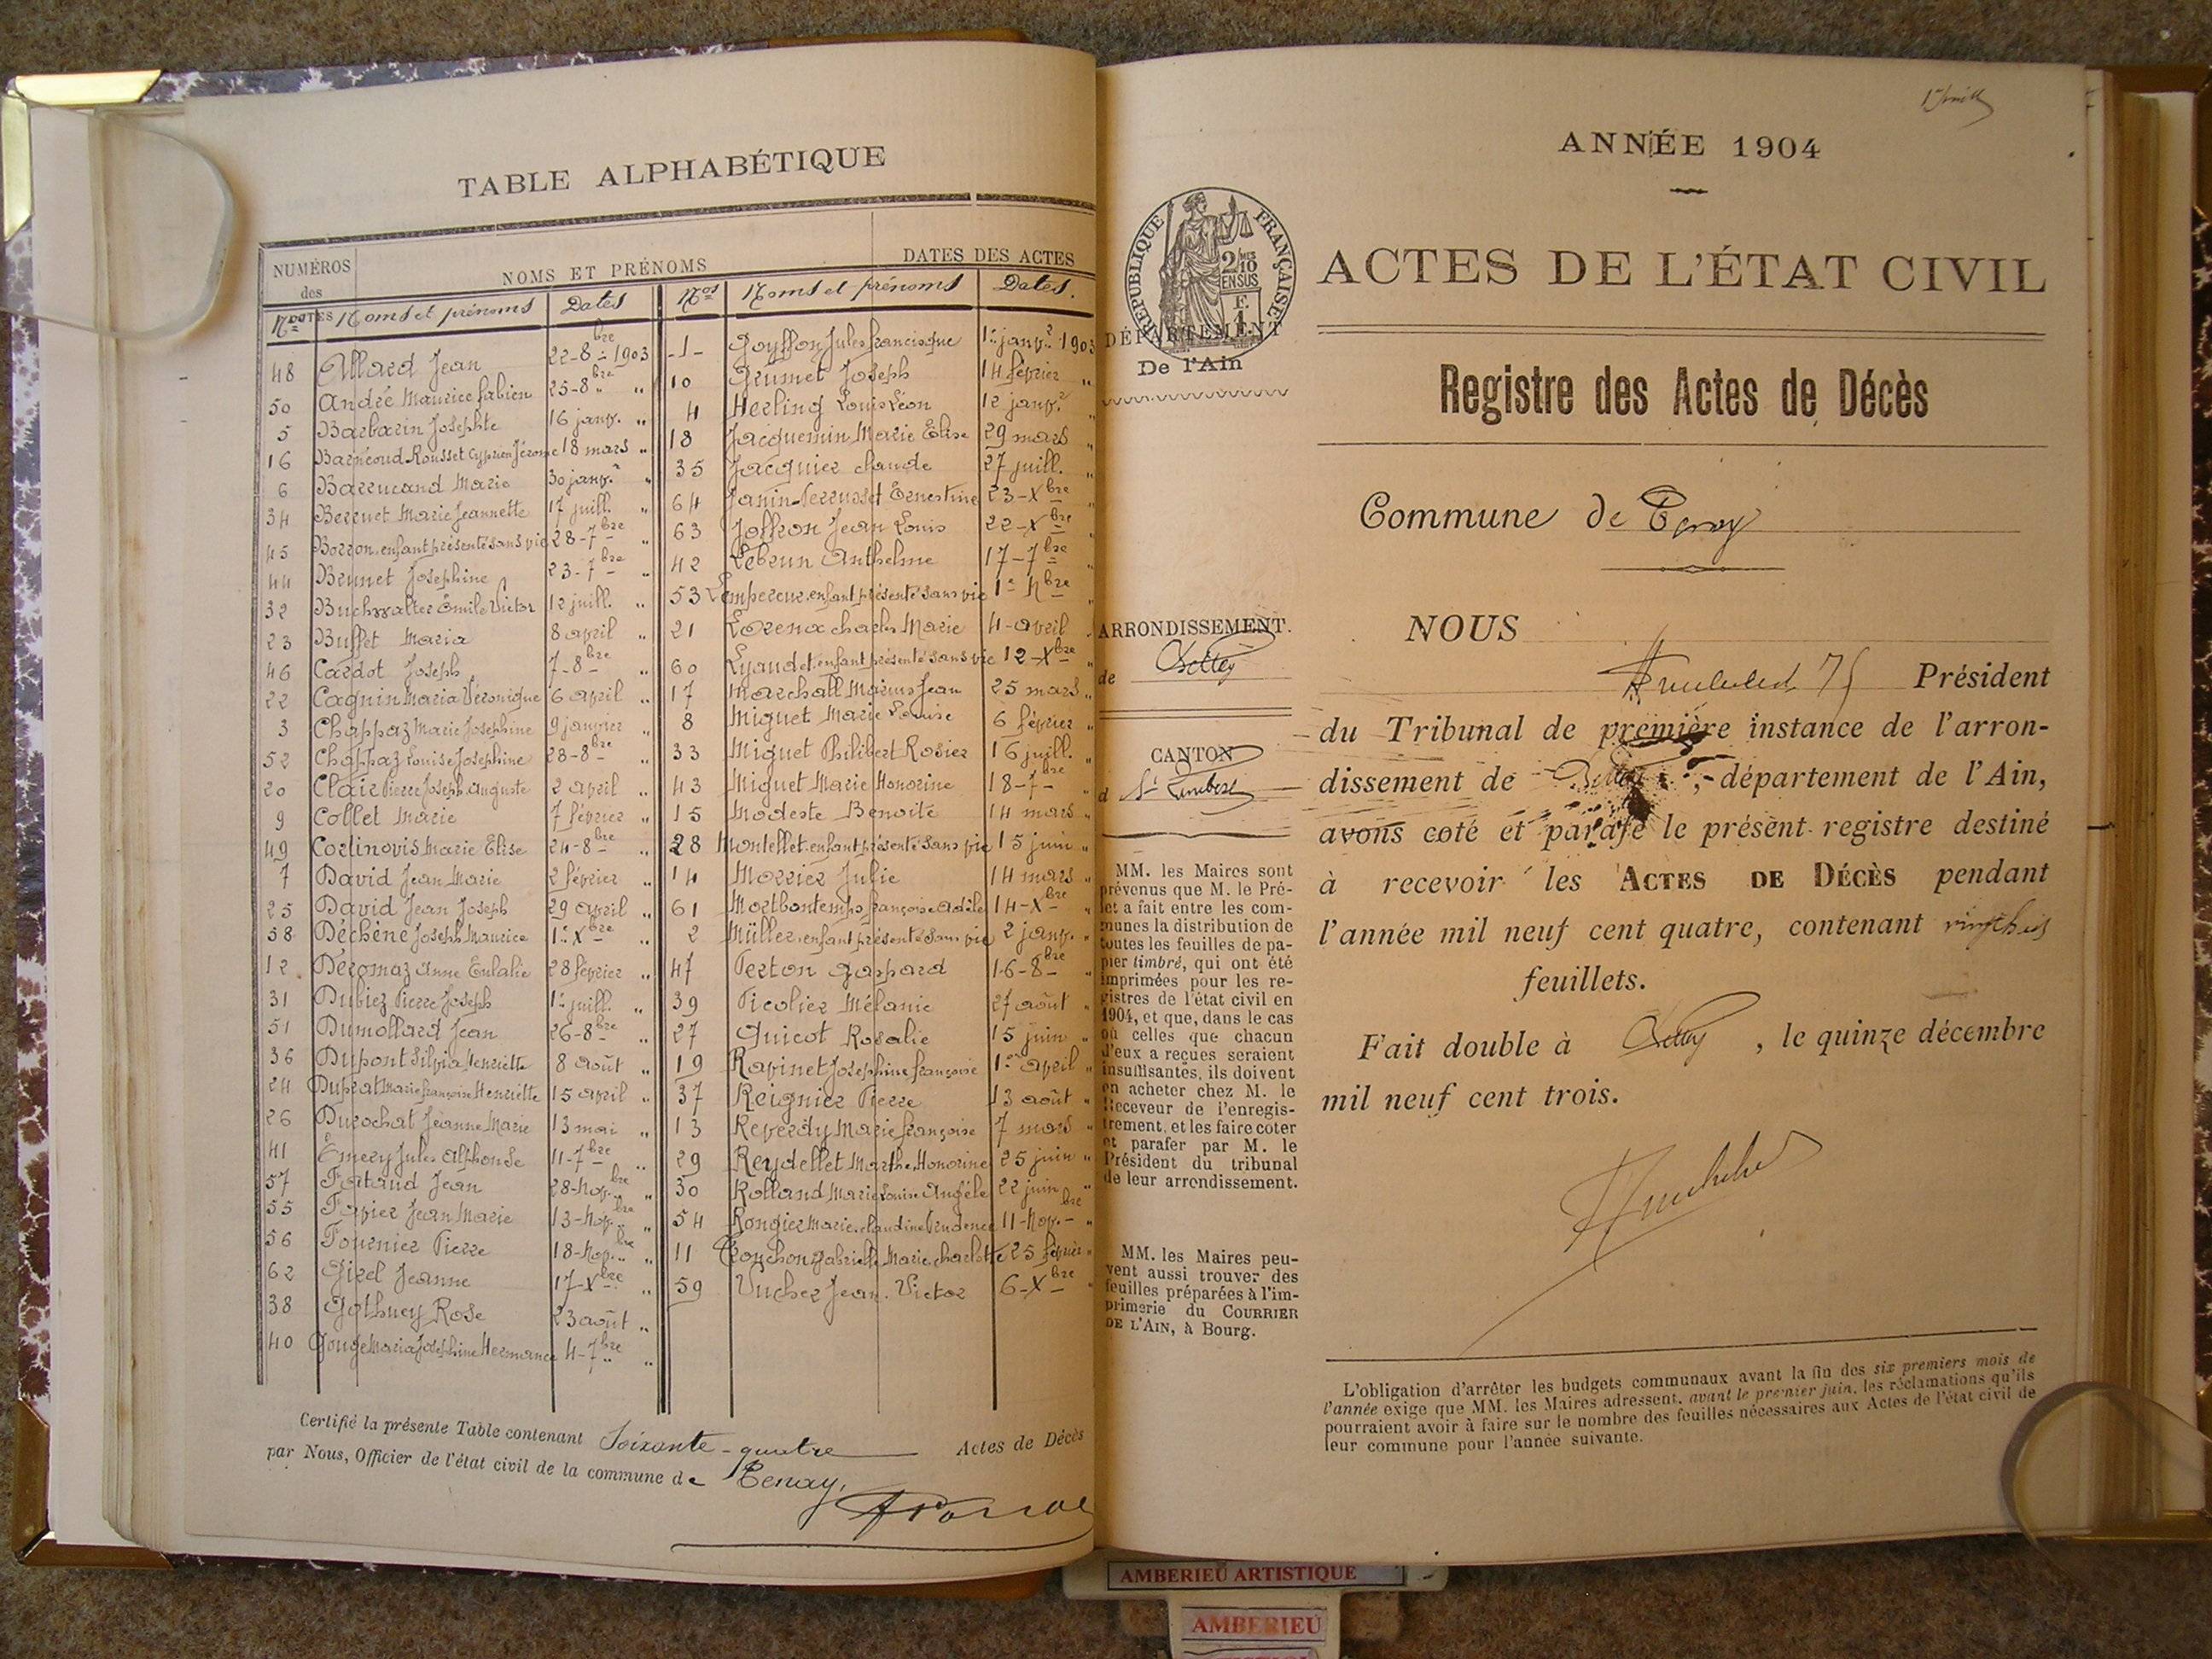 TABLE ALPHABÉTIQUE
NUMÉROS des ACTES
NOMS ET PRÉNOMS
DATES DES ACTES
Nos Noms et prénoms Dates
48 Allard Jean 22-8bre 1903
50 André Maurice fabien 25-8bre "
5 Barbarin Josephte 16 janv. "
16 Rousset Cyprien Jérome 18 mars "
6 Barrucand Marie 30 janv. "
34 Berruet Marie Jeannette 17 juill. "
45 Borron, enfant présenté sans vie 28-7bre "
44 Brunet Josephine 23-7bre "
32 Buchwalter Émile Victor 12 juill. "
23 Buffet Maria 8 avril "
46 Cardot Joseph 7-8bre "
22 Cagnin Maria Véronique 6 avril "
3 Chappaz Marie Josephine 9 janvier "
52 Chappaz Louise Josephine 28-8bre "
20 Clair Pierre Joseph Auguste 2 avril "
9 Collet Marie 7 février "
49 Cortinovis Marie Elise 24-8bre "
7 David Jean Marie 2 février "
25 David Jean Joseph 29 avril "
58 Déchêne Joseph Maurice 1er Xbre "
12 Déromaz Anne Eulalie 28 février "
31 Dubiez Pierre Joseph 1er juill. "
51 Dumollard Jean 26-8bre "
36 Dupont Silvia Henriette 8 août "
24 Duprat Marie françoise Henriette 15 avril "
26 Durochat Jeanne Marie 13 mai "
41 Émery Jules Alphonse 11-7bre "
57 Jean 28-Nov.bre "
55 Favier Jean Marie 13-Nov.bre "
56 Fournier Pierre 18-Nov.bre "
62 Girel Jeanne 17-Xbre "
38 Gothuey Rose 23 août "
40 Gouge Maria Josephine Hermance 4-7bre "
Nos Noms et prénoms Dates.
-1- Goyffon Jules francisque 1er janv. 1903
10 Grumet Joseph 14 février "
4 Herling Louis Léon 12 janv. "
18 Jacquemin Marie Elise 29 mars "
35 Jacquier claude 27 juill. "
64 Janin-Perrusset Ernestine 23-Xbre "
63 Joffron Jean Louis 22-Xbre "
42 Lebrun Anthelme 17-7bre "
53 Lempereur, enfant présenté sans vie 1er Nbre "
21 Lorena charles Marie 4-avril "
60 Lyaudet, enfant présenté sans vie 12-Xbre "
17 Marchall Marius Jean 25 mars "
8 Miguet Marie Louise 6 février "
33 Miguet Philibert Rosier 16 juill. "
43 Miguet Marie Honorine 18-7bre "
15 Modeste Benoite 14 mars "
28 Montellet, enfant présenté sans vie 15 juin "
14 Morrier Julie 14 mars "
61 Mortbontemps françoise Adèle 14-Xbre "
2 Müller, enfant présenté sans vie 2 janv. "
47 Perton Gaspard 16-8bre "
39 Picolier Mélanie 27 août "
27 Quicot Rosalie 15 juin "
19 Ravinet Josephine françoise 1er avril "
37 Reignier Pierre 13 août "
13 Reverdy Marie françoise 7 mars "
29 Reydellet Marthe Honorine 25 juin "
30 Rolland Marie Louise Angèle 22 juin "
54 Rongier Marie claudine Prudence 11-Nov.bre "
11 Tronchon Gabrielle Marie charlotte 25 février "
59 Vucher Jean-Victor 6-Xbre "
Certifié la présente Table contenant Soixante-quatre Actes de Décès
par Nous, Officier de l'état civil de la commune de Tenay,
1er juill
ANNÉE 1904
ACTES DE L'ÉTAT CIVIL
RÉPUBLIQUE FRANÇAISE
2/10 EN SUS
F. 1
DÉPARTEMENT
De l'Ain
Registre des Actes de Décès
Commune de Tenay
ARRONDISSEMENT
de Belley
CANTON
d St Rambert
NOUS
Président
du Tribunal de première instance de l'arron-
dissement de Belley, département de l'Ain,
avons coté et parafé le présent registre destiné
à recevoir les ACTES DE DÉCÈS pendant
l'année mil neuf cent quatre, contenant
feuillets.
Fait double à Belley, le quinze décembre
mil neuf cent trois.
MM. les Maires sont
prévenus que M. le Pré-
fet a fait entre les com-
munes la distribution de
toutes les feuilles de pa-
pier timbré, qui ont été
imprimées pour les re-
gistres de l'état civil en
1904, et que, dans le cas
où celles que chacun
d'eux a reçues seraient
insuffisantes, ils doivent
en acheter chez M. le
Receveur de l'enregis-
trement, et les faire coter
et parafer par M. le
Président du tribunal
de leur arrondissement.
MM. les Maires peu-
vent aussi trouver des
feuilles préparées à l'im-
primerie du COURRIER
DE L'AIN, à Bourg.
L'obligation d'arrêter les budgets communaux avant la fin des six premiers mois de
l'année exige que MM. les Maires adressent, avant le premier juin, les réclamations qu'ils
pourraient avoir à faire sur le nombre des feuilles nécessaires aux Actes de l'état civil de
leur commune pour l'année suivante.
AMBERIEU ARTISTIQUE
AMBERIEU